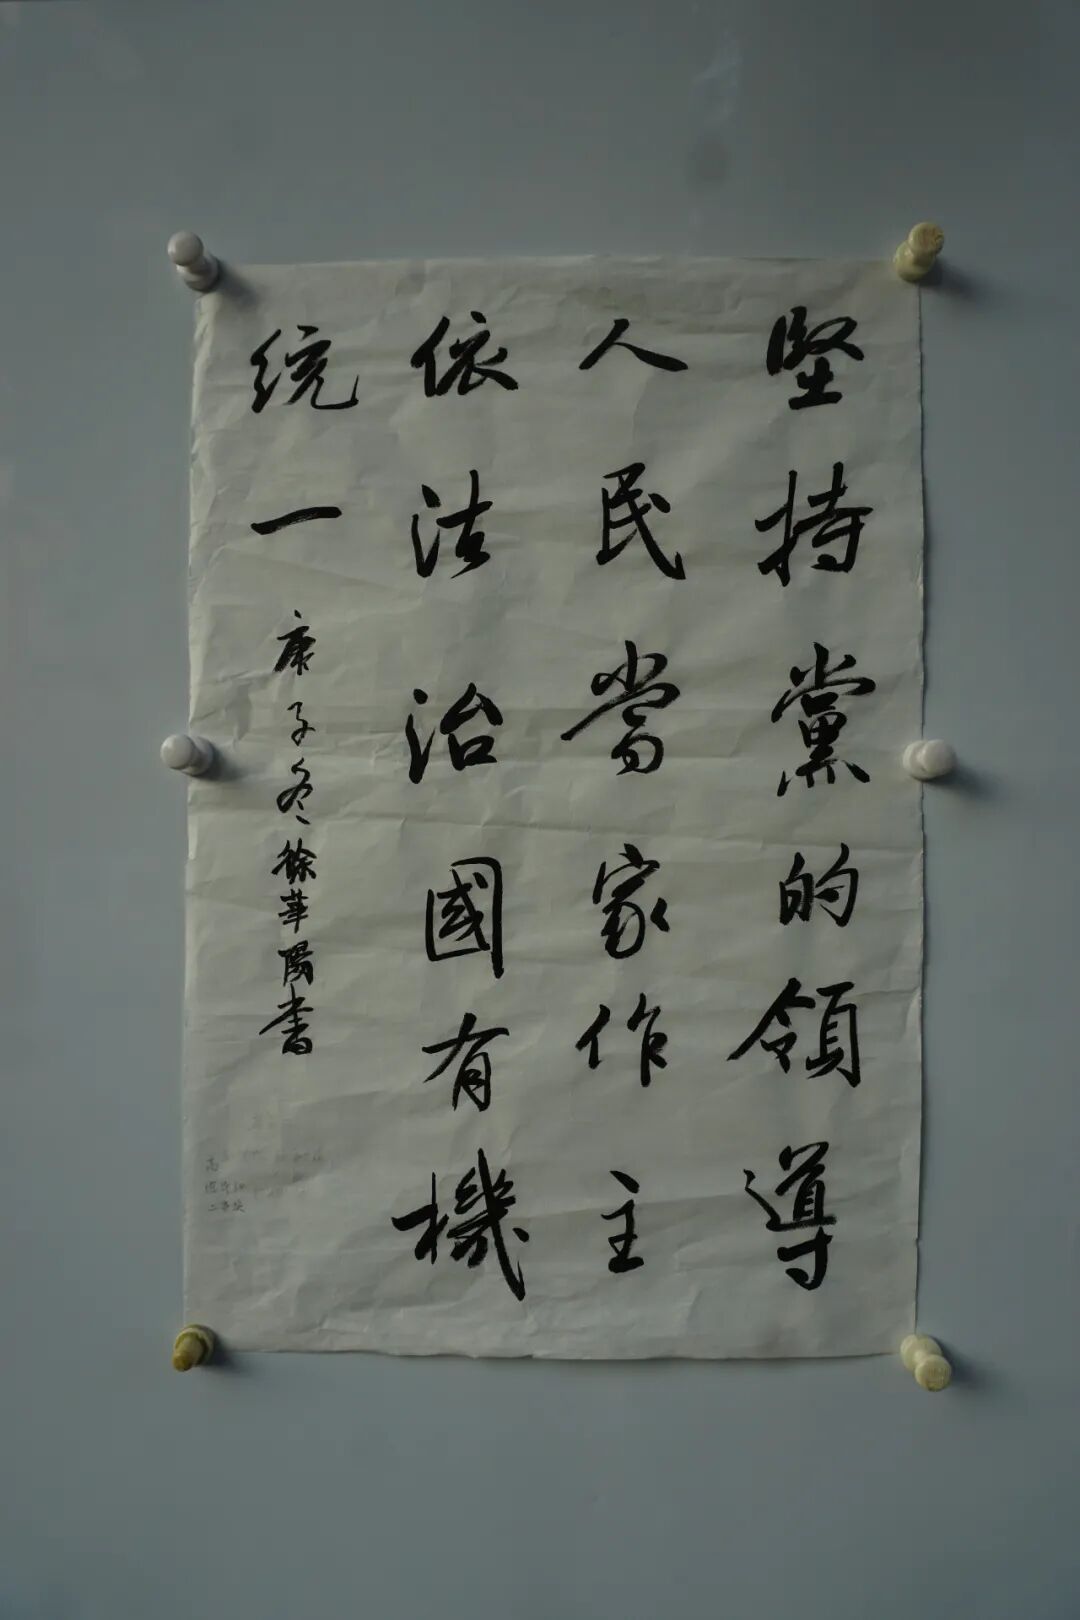 堅持黨的領導
人民當家作主
依法治國有機
統一
庚子冬徐華陽書